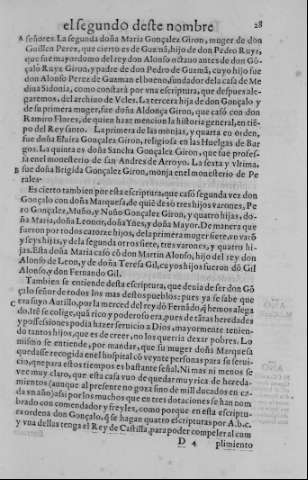 el segundo deste nombre 28
A señores. La segunda doña Maria Gonçalez Giron, muger de don
Guillen Perez, que cierto es de Guzmã, hijo de don Pedro Ruyz,
que fue mayordomo del rey don Alonso octauo antes de don Gõ-
çalo Ruyz Giron, y padre de don Pedro de Guzmã, cuyo hijo fue
don Alonso Perez de Guzman el bueno, fundador de la casa de Me
dina Sidonia, como constará por vna escriptura, que despues ale-
garemos, del archiuo de Veles. La tercera hija de don Gonçalo y
de su primera muger, fue doña Aldonça Giron, que casó con don
Ramiro Flores, de quien haze mencion la historia general, en tiẽ-
po del Rey santo. La primera de las monjas, y quarta en orden,
fue doña Eluira Gonçalez Giron, religiosa en las Huelgas de Bur-
gos. La quinta es doña Sancha Gonçalez Giron, que fue profes-
sa en el monesterio de san Andres de Arroyo. La sexta y vltima,
fue doña Brigida Gonçalez Giron, monja en el monesterio de Pe
rales.
Es cierto tambien por esta escriptura, que casó segunda vez don
Gonçalo con doña Marquesa, de quiẽ de xó tres hijos varones, Pe
ro Gonçalez, Muño, y Nuño Gonçalez Giron, y quatro hijas, do-
ña Maria, doña Leonor, doña Ynes, y doña Mayor. De manera que
fueron por todos catorze hijos, de la primera moger siete, vn varõ
y seys hijas, y de la segunda otros siete, tres varones, y quatro hi-
jas. Esta doña Maria casó cõ don Martin Alonso, hijo del rey don
Alonso de Leon, y de doña Teresa Gil, cuyos hijos fueron dõ Gil
Alonso, y don Fernando Gil.
Tambien se entiende desta escriptura, que deuia de ser don Gõ
çalo señor de todos los mas destos pueblos: pues ya se sabe que
C era suyo Autillo, por la merced del rey dõ Fernãdo, q̃ hemos alega
do, itẽ se colige, quã rico y poderoso era, pues de tãtas heredades
y possessiones podia hazer seruicio a Dios, mayormente tenien-
do tantos hijos, que es de creer, no los querria dexar pobres. Lo
mismo se entiende, por mandar, que su muger doña Marquesa
quedasse recogida en el hospital cõ veynte personas para su serui-
cio, que para estos tiempos es bastante señal. Ni mas ni menos se
vee muy claro, que esta casa vuo de quedar muy rica de hereda-
mientos (aunque al presente no goza sino de mill ducados en ca-
da vn año) assi por los muchos que en tres dotaciones se han nom
brado con comendador y freyles, como porque en esta escriptu-
ra ordena don Gonçalo, q̃ se hagan quatro escripturas por A.b.c.
y vna dellas tenga el Rey de Castilla, para poder compeler al cum
D 4 plimiento